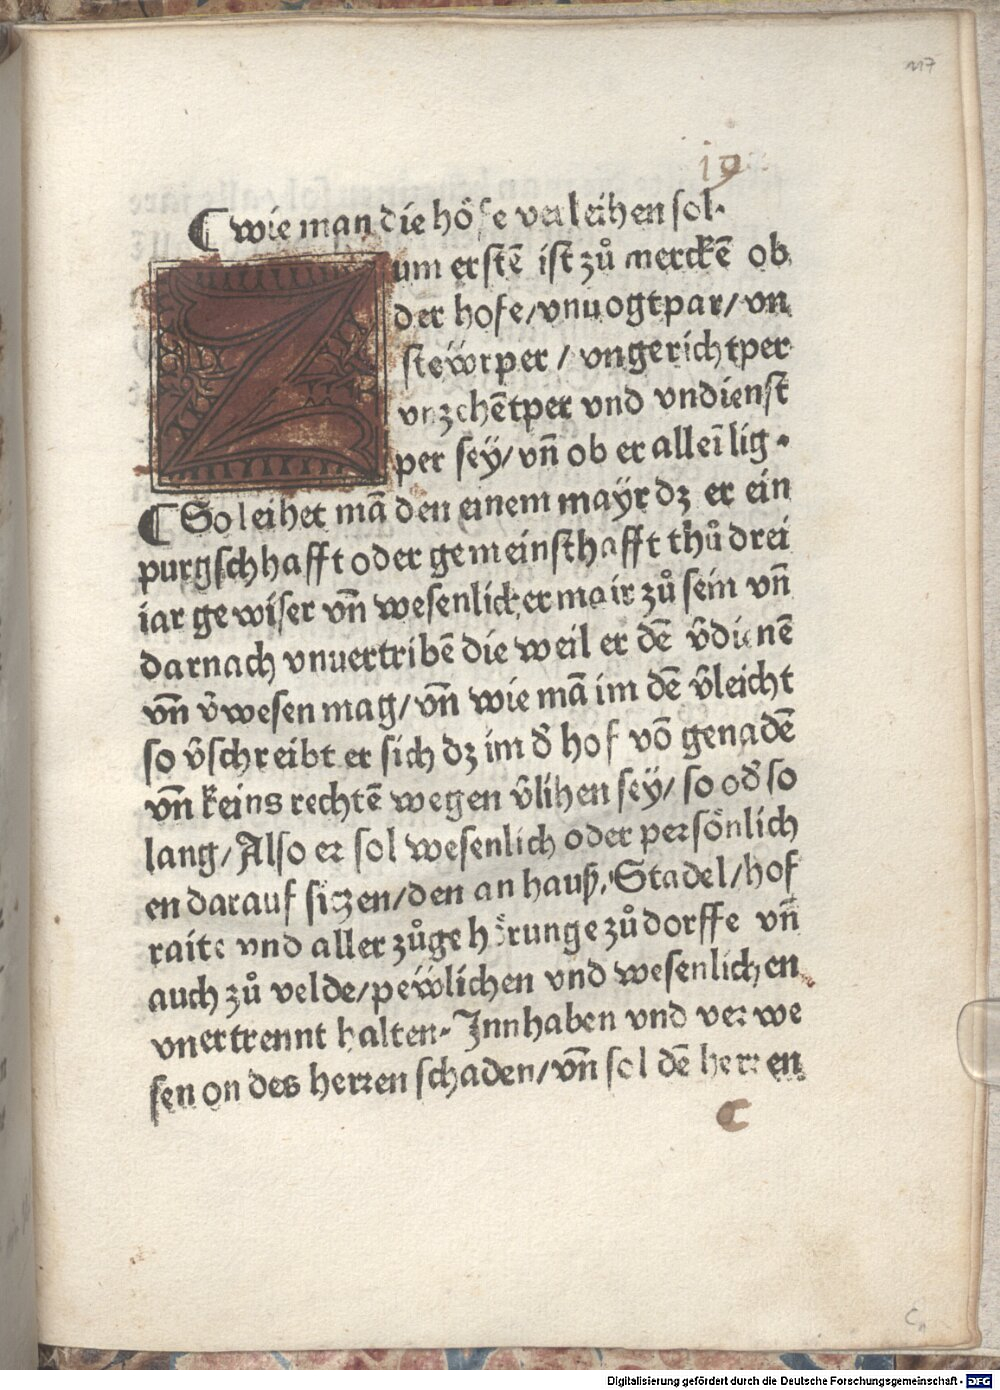 117
19
¶ wie man die höfe verleihen sol.
Zum erstē ist zů merckē ob
der hofe/vnuogtpar/vn
stëwrper/ vngerichtper
vnzchētper vnd vndienst
per sey/ vn̄ ob er alleī lig.
¶ So leihet mā den einem mayr dz er ein
purgschhafft oder gemeinsthafft thů drei
iar gewiser vn̄ wesenlicher mair zů sein vn̄
darnach vnuertribē die weil er dē v̄dienē
vn̄ v̄wesen mag/ vn̄ wie mā im dē v̄leicht
so v̄schreibt er sich dz im d̄ hof vō genadē
vn̄ keins rechtē wegen v̄lihen sey/ so od̄ so
lang/ Also er sol wesenlich oder persönlich
en darauf sitzen/den an hauß/ Stadel/hof
raite vnd aller zůgehörunge zů dorffe vn̄
auch zů velde/pëwlichen vnd wesenlichen
vnertrennt halten. Jnnhaben vnd verwe
sen on des herren schaden/vn̄ sol dē herren
C
Digitalisierung gefördert durch die Deutsche Forschungsgemeinschaft - DFG